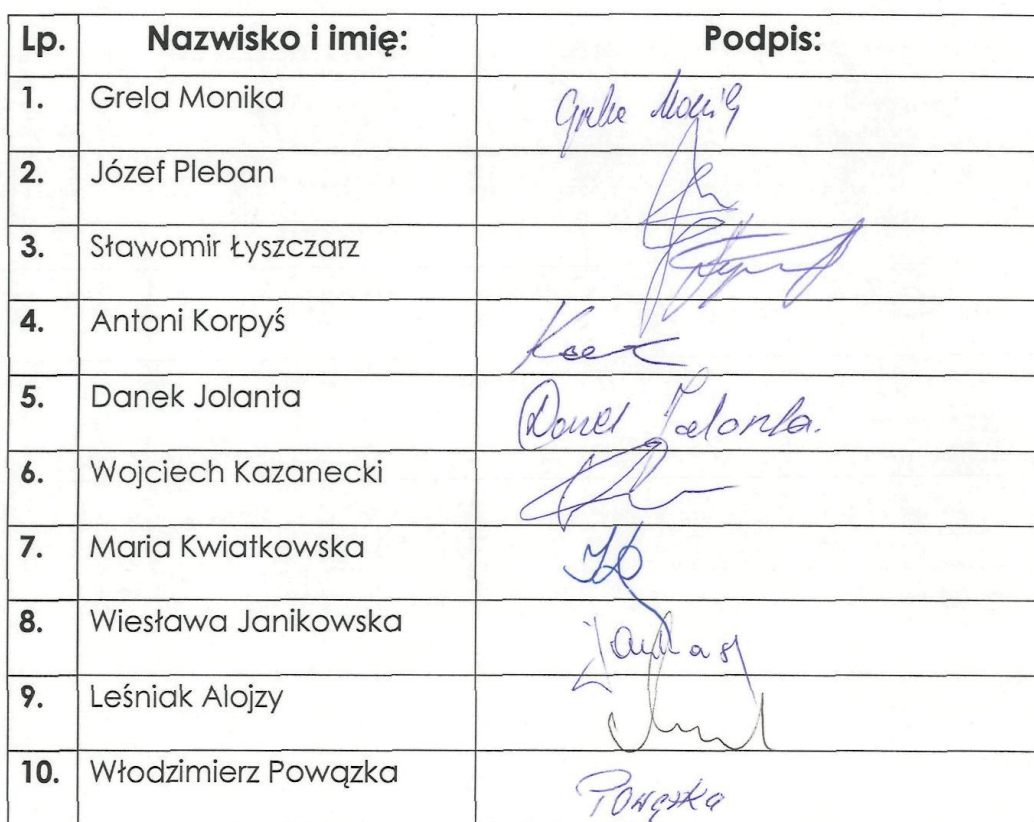 Lp. Nazwisko i imię: Podpis:
1. Grela Monika
2. Józef Pleban
3. Sławomir Łyszczarz
4. Antoni Korpyś
5. Danek Jolanta Danek Jolanta.
6. Wojciech Kazanecki
7. Maria Kwiatkowska
8. Wiesława Janikowska
9. Leśniak Alojzy
10. Włodzimierz Powązka Powązka